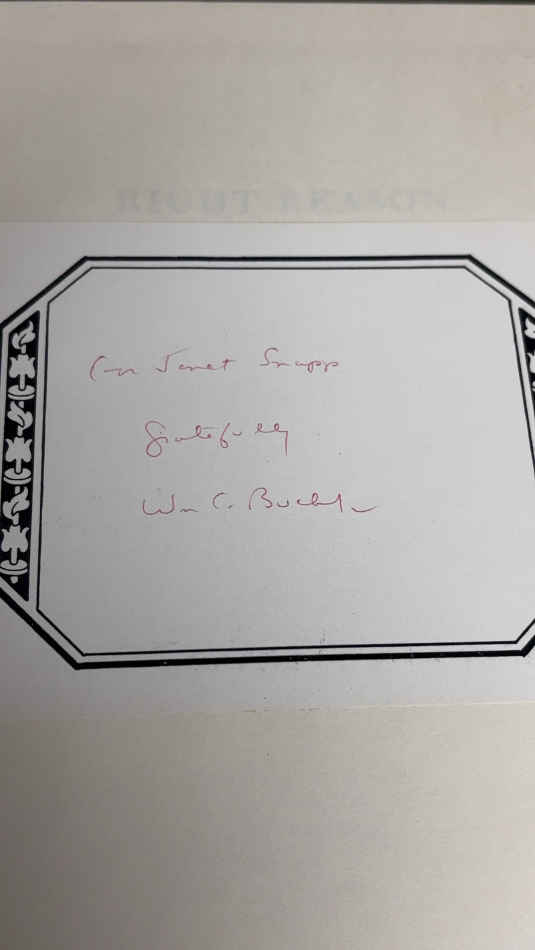 RIGHT REASON
for Janet Snapp
Gratefully
Wm C. Buckley